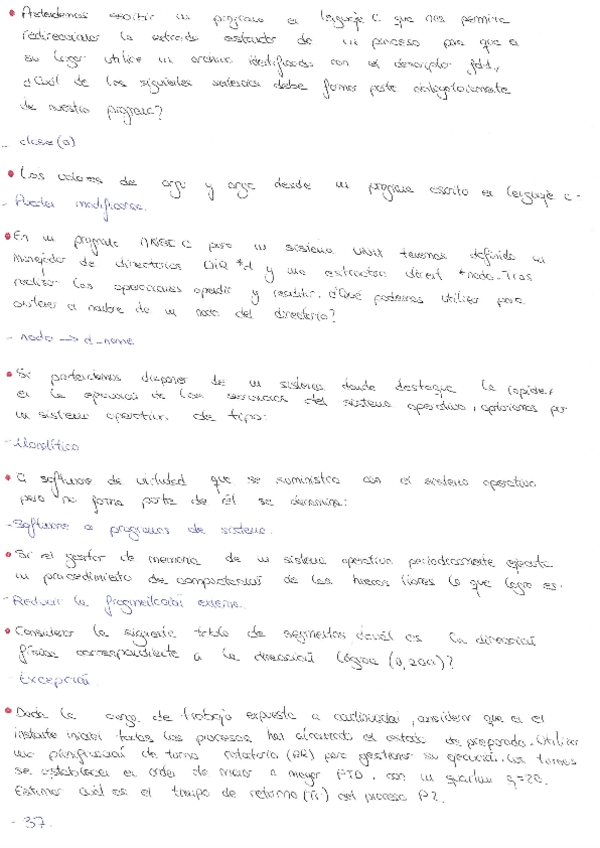 • Pretendemos escribir un programa en lenguaje C que nos permita
redireccionar la entrada estándar de un proceso para que en
su lugar utilice un archivo identificado con el descriptor fd1,
¿Cuál de los siguientes servicios debe formar parte obligatoriamente
de nuestro programa?
- close(0)
• Los valores de argv y argc desde un programa escrito en lenguaje C -
- Pueden modificarse.
• En un programa ANSI C para un sistema UNIX tenemos definido un
manejador de directorios DIR *d y una estructura dirent *nodo. Tras
realizar las operaciones opendir y readdir. ¿Qué podemos utilizar para
obtener el nombre de un nodo del directorio?
- nodo -> d_name
• Si pretendemos disponer de un sistema donde destaque la rapidez
en la de los servicios del sistema operativo, optaríamos por
un sistema operativo de tipo:
- Monolítico
• El software de utilidad que se suministra con el sistema operativo
pero no forma parte de él se denomina:
- Software o programas de sistema.
• Si el gestor de memoria de un sistema operativo periódicamente ejecuta
un procedimiento de compactación de los huecos libres lo que logra es.
- Reducir la fragmentación externa.
• Considerar la siguiente tabla de segmentos ¿cuál es la dirección
física correspondiente a la dirección lógica (0,200)?
- Excepción
• Dada la carga de trabajo expuesta a continuación, considerar que en el
instante inicial todos los procesos han alcanzado el estado de preparado. Utilizar
una planificación de turno rotatorio (RR) para gestionar su ejecución. Los turnos
se establecen en orden de menor a mayor PID, con un quantum q=20.
Estimar cuál es el tiempo de retorno (Tr) del proceso P2.
- 37.